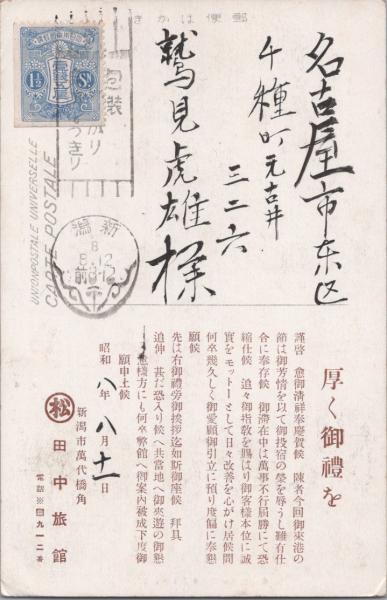 郵便はかき
大日本帝国郵便
1½ Sn
壹銭五厘
包装
UNION POSTALE UNIVERSELLE
CARTE POSTALE
新潟
8
8.12
前8-12
名古屋市東区
千種町元古井
三二六
鷲見虎雄様
厚く御禮を
謹啓 愈御清祥奉慶賀候 陳者今回御來港の
節は御芳情を以て御投宿の榮を辱うし難有仕
合に奉存候 御滯在中は萬事不行屆勝にて恐
縮仕候 追々御指教を賜はり御客樣本位に誠
實をモットーとして日々改善を心がけ居候間
何卒幾久しく御愛顧御引立に預り度偏に奉懇
願候
先は右御禮旁御挨拶迄如斯御座候 拜具
追伸 甚だ恐入り候へ共當地へ御來遊の御懇
意樣方にも何卒弊館へ御案內被成下度御
願申上候
昭和八年八月十一日
新潟市萬代橋角
松 田中旅館
電話※四九一二番